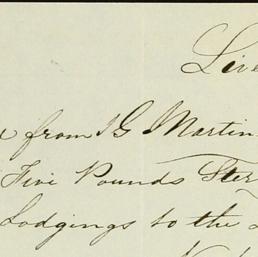 Live
from J G Martin
Five Pounds Ster
Lodgings to the